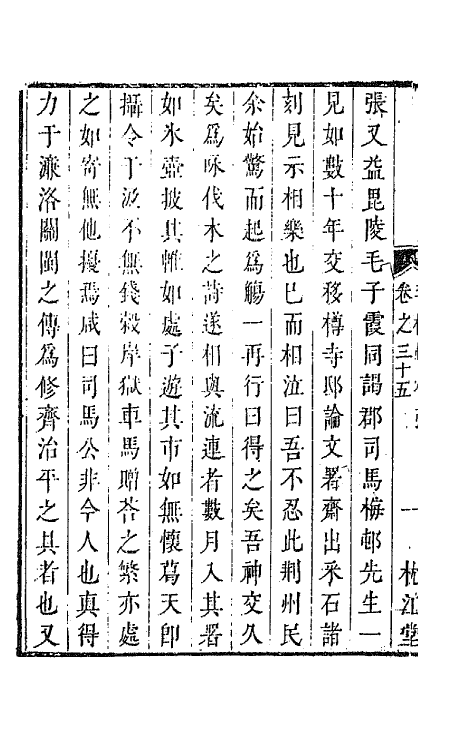 卷之三十五
一
張又益毘陵毛子霞同謁郡司馬梅邨先生一
見如數十年交移樽寺邸論文署齋出采石諸
刻見示相樂也已而相泣曰吾不忍此荆州民
余始驚而起爲觴一再行曰得之矣吾神交久
矣爲咏伐木之詩遂相與流連者數月入其署
如氷壺披其帷如處子遊其市如無懷葛天卽
攝令于汲不無錢穀岸獄車馬贈荅之繁亦處
之如寄無他擾焉咸曰司馬公非今人也真得
力于濂洛關閩之傳爲修齊治平之具者也又